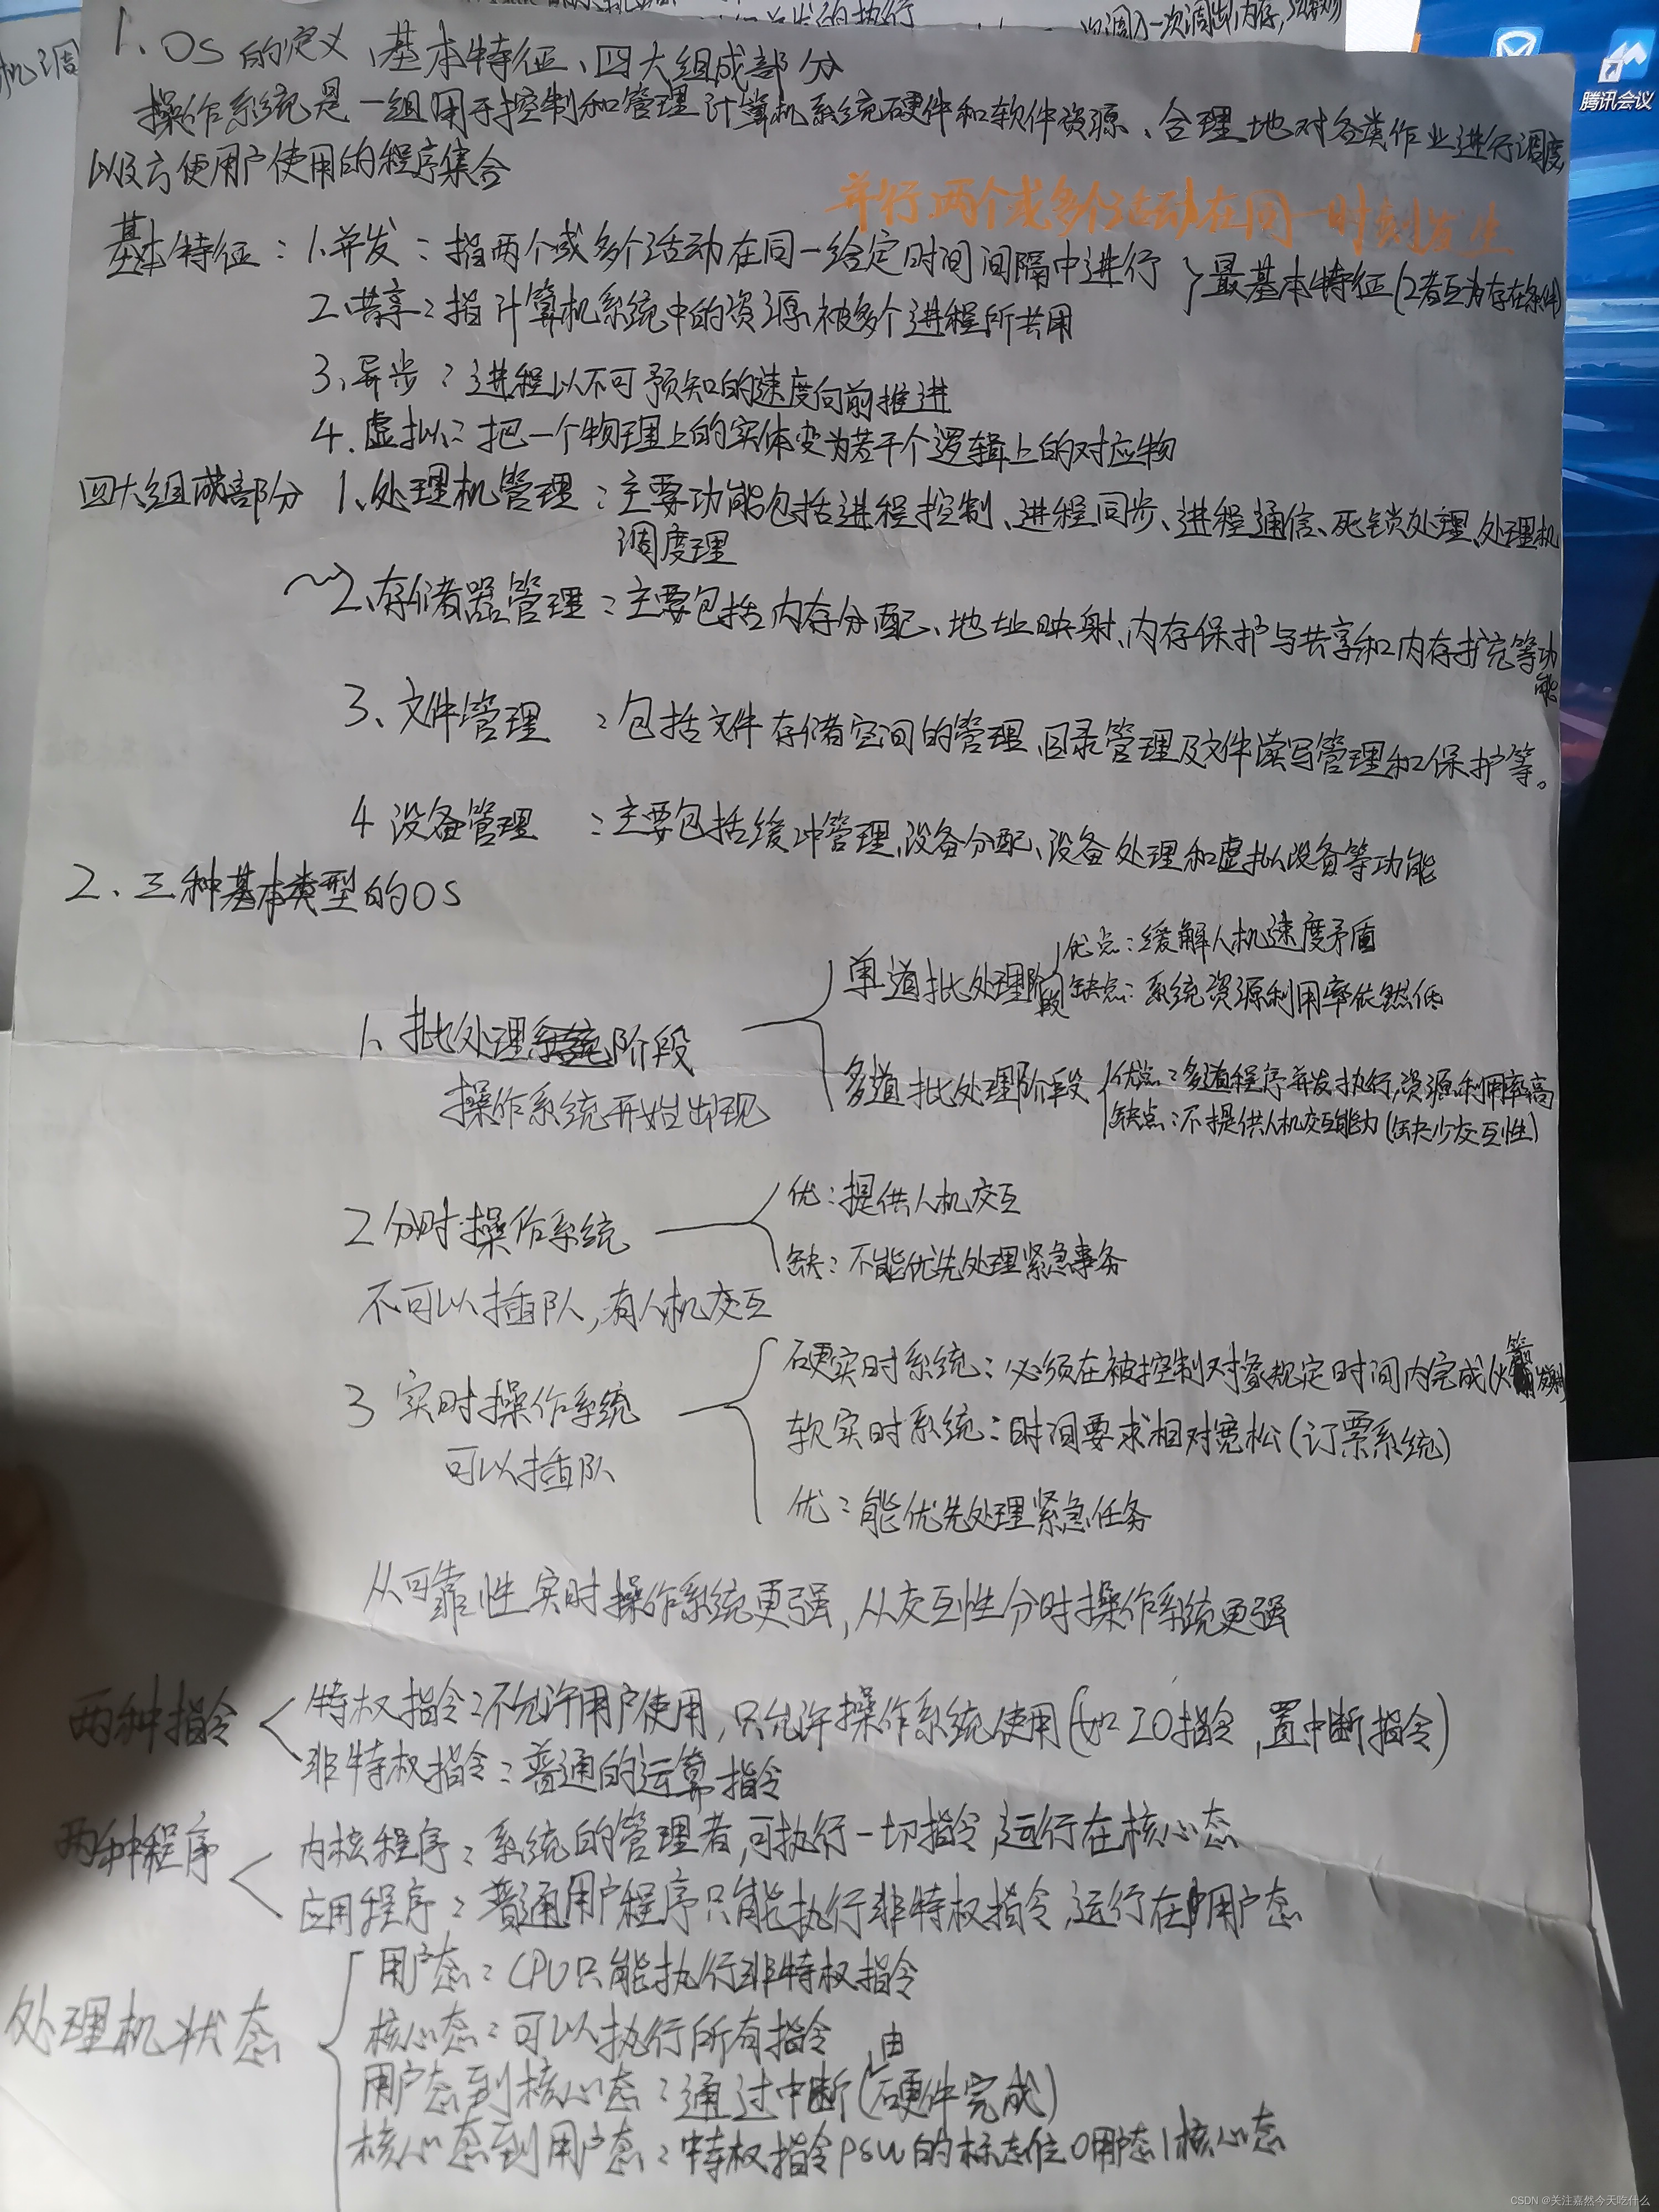 的执行
一次调入一次调出内存,
机调
腾讯会议
1、OS的定义、基本特征、四大组成部分
操作系统是一组用于控制和管理计算机系统硬件和软件资源、合理地对各类作业进行调度
以及方便用户使用的程序集合
并行、两个或多个活动在同一时刻发生
基本特征：1、并发：指两个或多个活动在同一给定时间间隔中进行 } 最基本特征(2者互为存在条件)
2、共享：指计算机系统中的资源被多个进程所共用
3、异步：进程以不可预知的速度向前推进
4.虚拟：把一个物理上的实体变为若干个逻辑上的对应物
四大组成部分 1、处理机管理：主要功能包括进程控制、进程同步、进程通信、死锁处理、处理机
调度理
2、存储器管理：主要包括内存分配、地址映射、内存保护与共享和内存扩充等功能
3、文件管理：包括文件存储空间的管理、目录管理及文件读写管理和保护等。
4 设备管理：主要包括缓冲管理、设备分配、设备处理和虚拟设备等功能
2、三种基本类型的OS
优点：缓解人机速度矛盾
单道批处理阶段 缺点：系统资源利用率依然低
1、批处理阶段
多道批处理阶段 优点：多道程序并发执行,资源利用率高
操作系统开始出现 缺点：不提供人机交互能力(缺少交互性)
优：提供人机交互
2 分时操作系统
缺：不能优先处理紧急事务
不可以插队,有人机交互
硬实时系统：必须在被控制对象规定时间内完成(火箭发射)
3 实时操作系统
软实时系统：时间要求相对宽松(订票系统)
可以插队
优：能优先处理紧急任务
从可靠性实时操作系统更强,从交互性分时操作系统更强
两种指令 特权指令：不允许用户使用,只允许操作系统使用(如IO指令,置中断指令)
非特权指令：普通的运算指令
两种程序 内核程序：系统的管理者,可执行一切指令,运行在核心态
应用程序：普通用户程序只能执行非特权指令,运行在用户态
用户态：CPU只能执行非特权指令
处理机状态 核心态：可以执行所有指令
用户态到核心态：通过中断(由硬件完成)
核心态到用户态：特权指令PSW的标志位 0用户态 1核心态
CSDN @关注嘉然今天吃什么